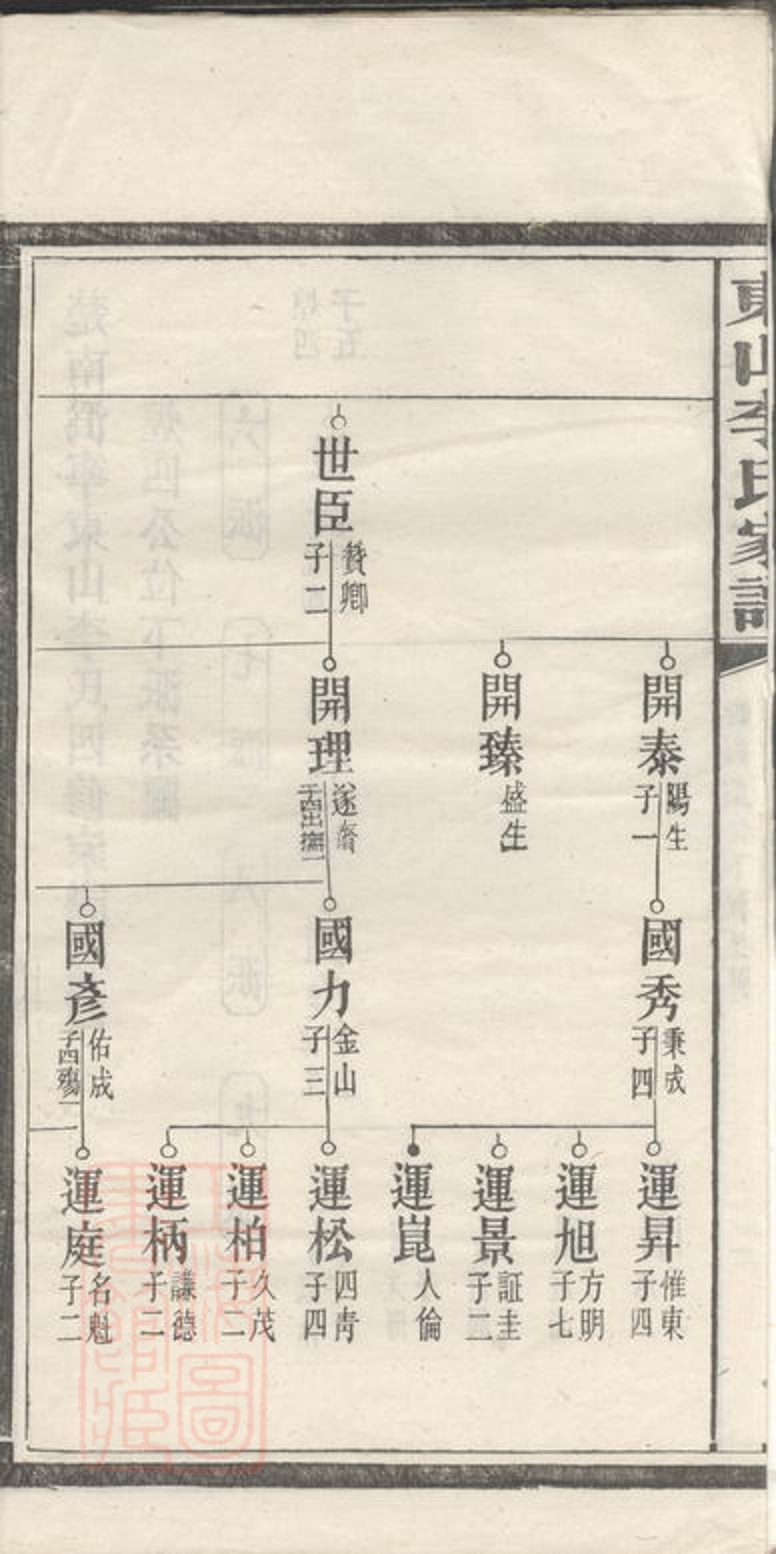 東山李氏家譜
世臣
贊卿
子二
開泰
陽生
子一
開臻
盛生
開理
遂齋
國秀
秉成
子四
國力
金山
子三
國彥
佑成
子四殤一
運昇
惟東
子四
運旭
方明
子七
運景
証圭
子二
運崑
人倫
運松
四靑
子四
運柏
久茂
子二
運柄
謙德
子二
運庭
名魁
子二